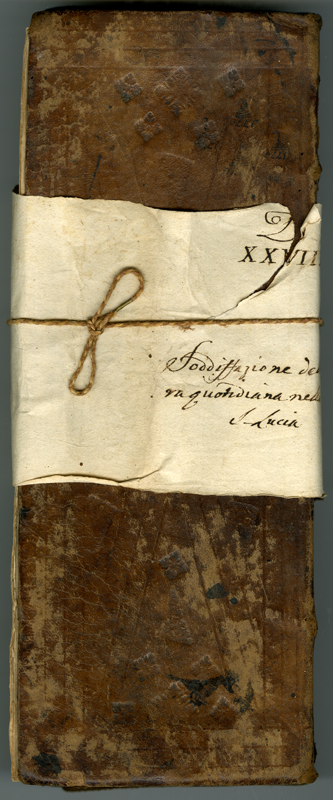 XXVII
Soddisfazione de
ra quotidiana nel
S. Lucia